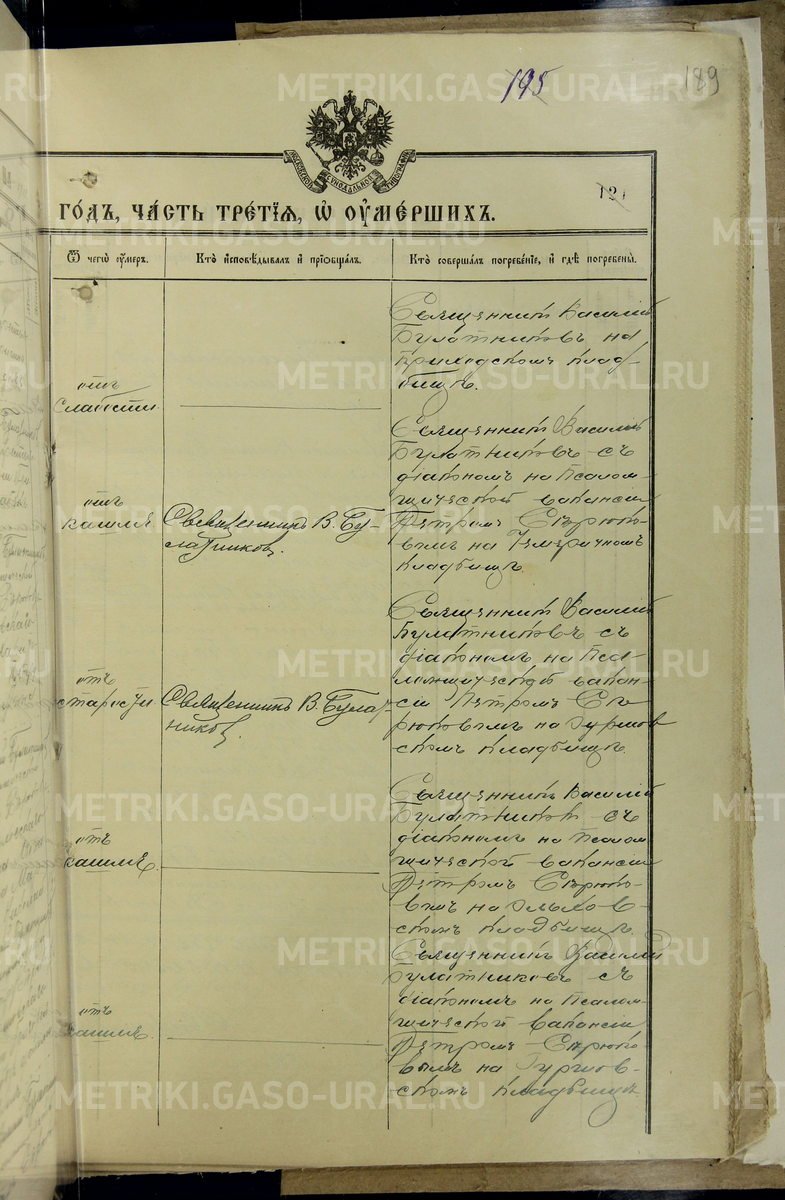 195
189
121
МОСКОВСКОЙ СѴНОДАЛЬНОЙ ТИПОГРАФІИ
ГО́ДЪ, ЧА́СТЬ ТРЕ́ТІѦ, Ѡ҆ ОУ҆МЕ́РШИХЪ.
Ѿ чегѡ̀ оу҆́меръ.
Кто̀ и҆сповѣ́дывалъ и҆ прїѡбща́лъ.
Кто̀ соверша́лъ погребе́нїе, и҆ гдѣ̀ погребены̀.
отъ
слабости
Священникъ Василій
Булатниковъ на
приходскомъ клад-
бищѣ.
отъ
кашля
Священникъ В. Бу-
латниковъ.
Священникъ Василій
Булатниковъ съ
діакономъ на псалом-
щической вакансіи
Петромъ Серюко-
вымъ на
кладбищѣ
отъ
старости
Священникъ В. Булат-
никовъ.
Священникъ Василій
Булатниковъ съ
діакономъ на пса-
ломщической вакан-
сіи Петромъ Се-
рюковымъ на
скомъ кладбищѣ
отъ
кашля
Священникъ Василій
Булатниковъ съ
діакономъ на псалом-
щической вакансіи
Петромъ Серюко-
вымъ на
скомъ кладбищѣ
отъ
кашля
Священникъ Василій
Булатниковъ съ
діакономъ на псалом-
щической вакансіи
Петромъ Серюко-
вымъ на
скомъ кладбищѣ
METRIKI.GASO-URAL.RU